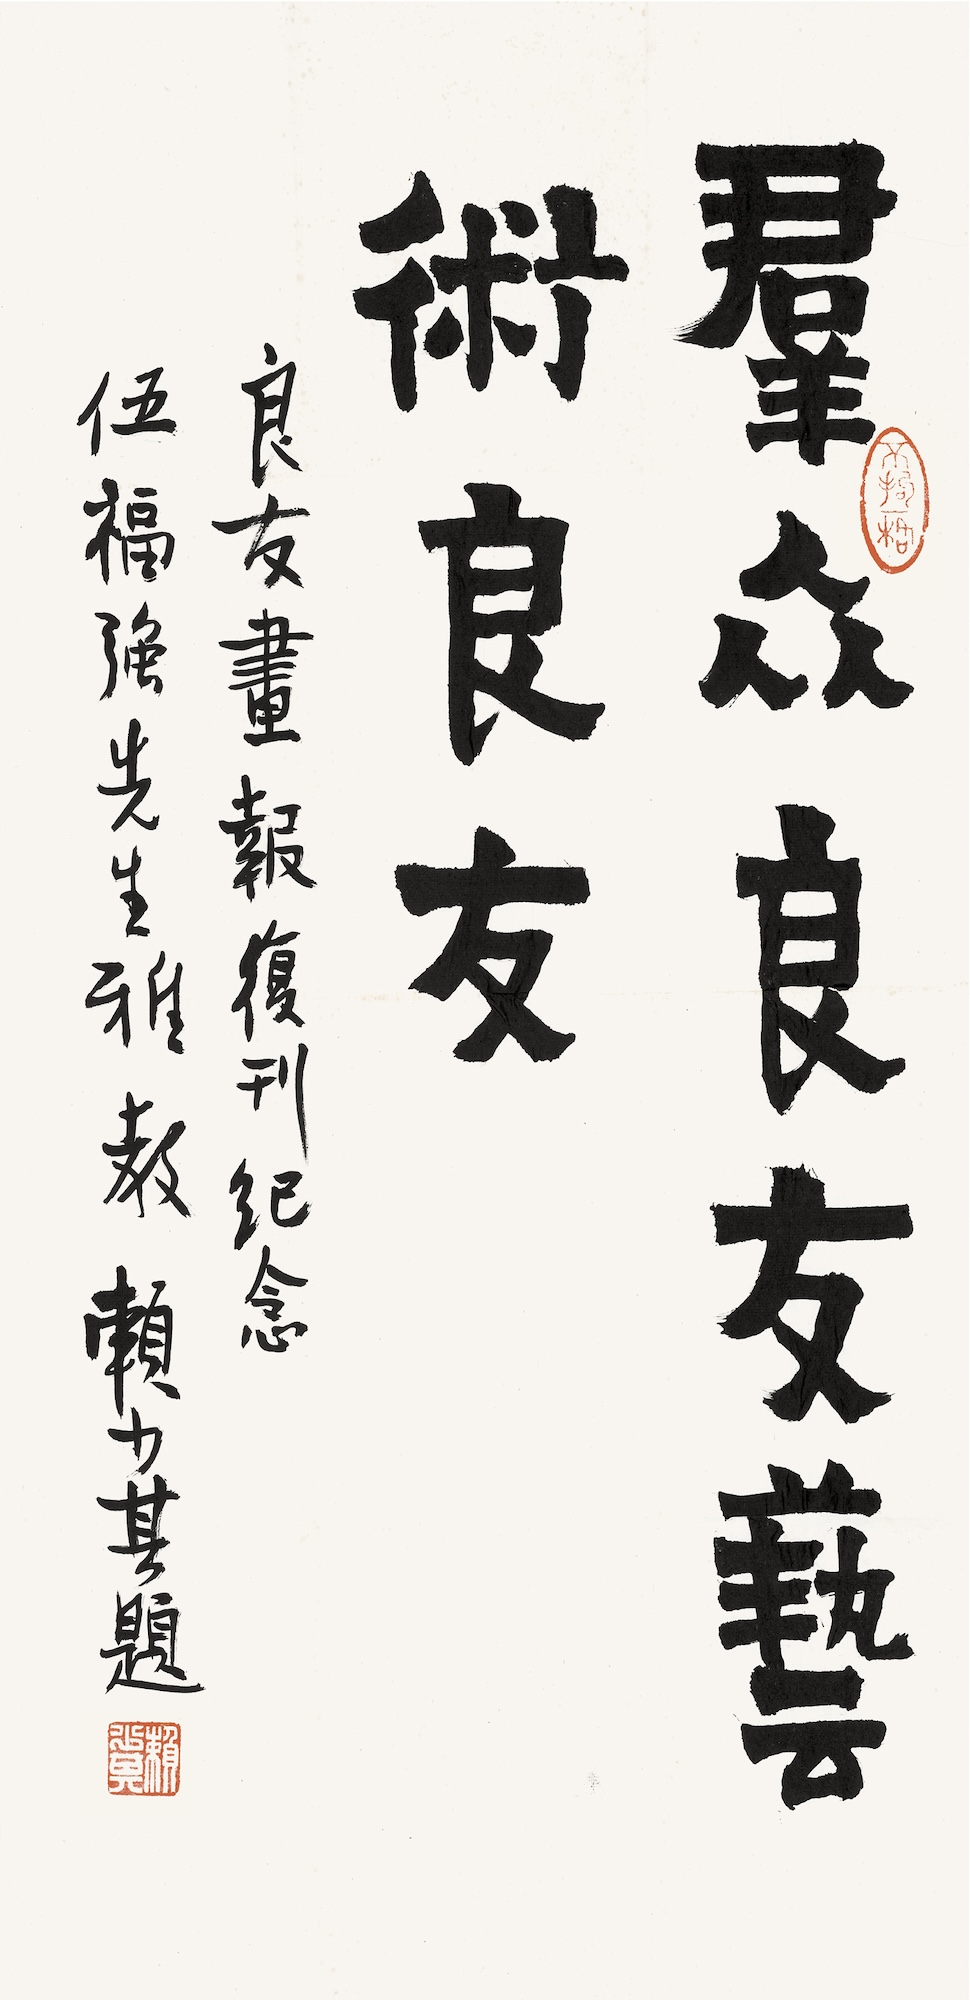 羣众良友藝
術良友
良友畫報復刊纪念
伍福强先生雅教 賴少其題
不拘一格